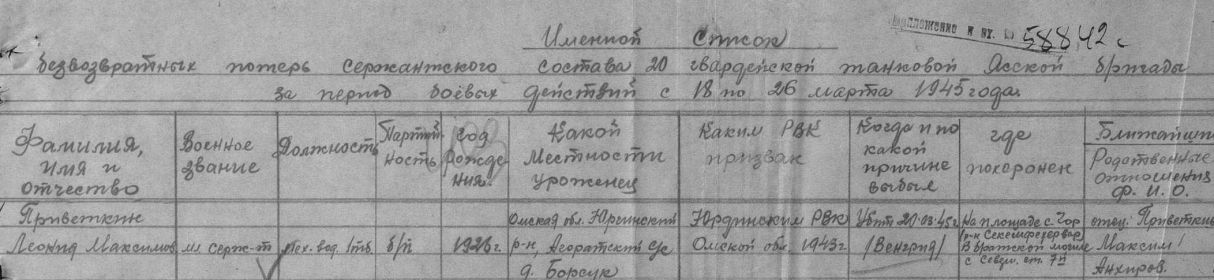 Приложение к вх. № 58842с
Именной Список
безвозвратных потерь сержантского состава 20 гвардейской танковой Ясской бригады
за период боевых действий с 18 по 26 марта 1945 года.
Фамилия, имя и отчество
Военное звание
Должность
Партийность
год рождения.
Какой местности уроженец
Каким РВК призван
Когда и по какой причине выбыл
где похоронен
Родственные отношения Ф. И. О.
Приветкин
Леонид Максимов.
мл серж-т
мех. вод.
б/п
1926г.
Омская обл. Юргинский
р-н,
д. Борсук
Юргинским РВК
Омской обл. 1943г
Убит 20.03.45г.
/Венгрия/
На площаде с.
В братской могиле
отец: Приветкин
Максим